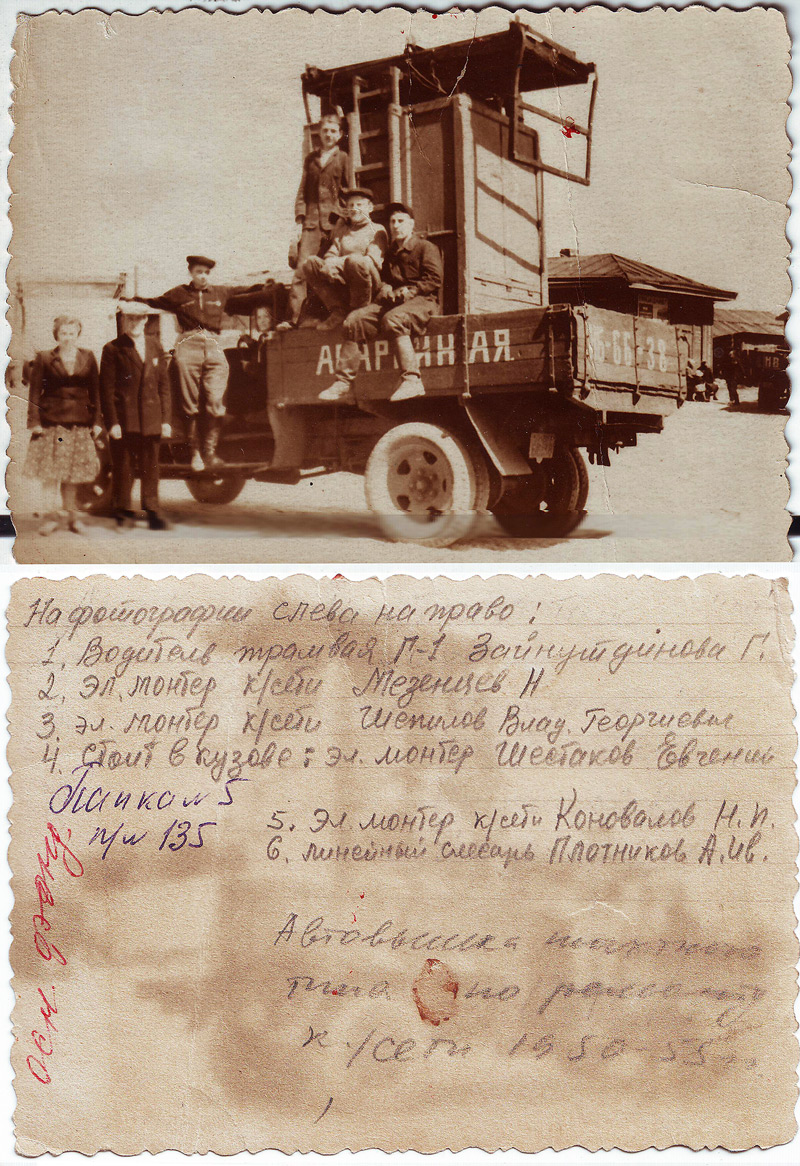 АВАРИЙНАЯ
На фотографии слева на право:
1. Водитель трамвая П-1 Зайнутдинова Г.
2. Эл. монтер к/сети Мезенцев Н
3. эл. монтер к/сети Шепилов Влад. Георгиевич
4. стоит в кузове: эл. монтер Шестаков Евгений
Папка № 5
п/№ 135
5. Эл. монтер к/сети Коновалов Н. И.
6. линейный слесарь Плотников А. Ив.
Автовышка
типа по ремонту
к/сети 1950-55